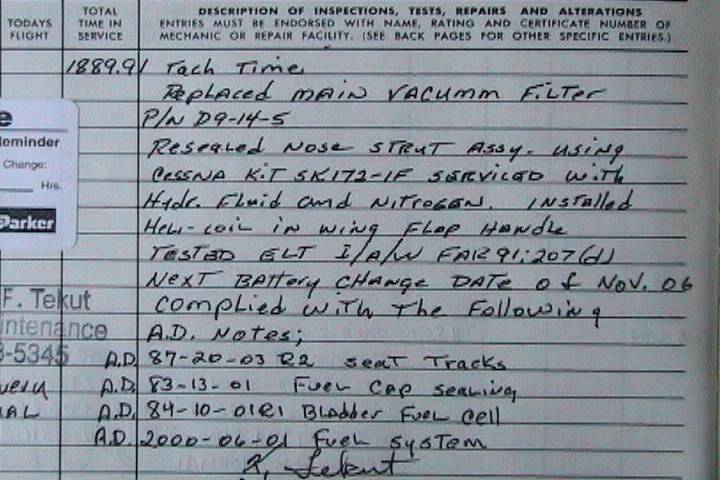 TODAYS FLIGHT
TOTAL TIME IN SERVICE
DESCRIPTION OF INSPECTIONS, TESTS, REPAIRS AND ALTERATIONS
ENTRIES MUST BE ENDORSED WITH NAME, RATING AND CERTIFICATE NUMBER OF
MECHANIC OR REPAIR FACILITY. (SEE BACK PAGES FOR OTHER SPECIFIC ENTRIES.)
1889.91 Tach Time
Replaced main vacumm Filter
P/N D9-14-5
Resealed Nose strut Assy. using
Cessna Kit SK172-1F serviced with
Hydr. Fluid and Nitrogen. Installed
Heli-coil in wing Flap Handle
Tested ELT I/A/W FAR 91:207(d)
Next Battery Change Date of Nov. 06
Complied with the Following
A.D. Notes;
A.D. 87-20-03 R2 seat Tracks
A.D. 83-13-01 Fuel Cap sealing
A.D. 84-10-01R1 Bladder Fuel Cell
A.D. 2000-06-01 Fuel system
Tekut
e
Reminder
Change:
Hrs.
Parker
F. Tekut
intenance
3-5345